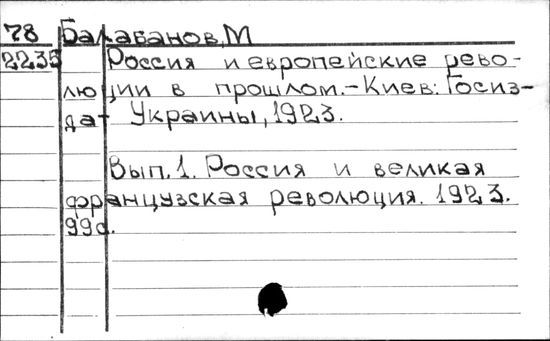 78 Балабанов, М
2235 Россия и европейские рево-
люции в прошлом.-Киев: Госиз-
дат Украины, 1923.
Вып. 1. Россия и великая
французская революция. 1923.
99с.